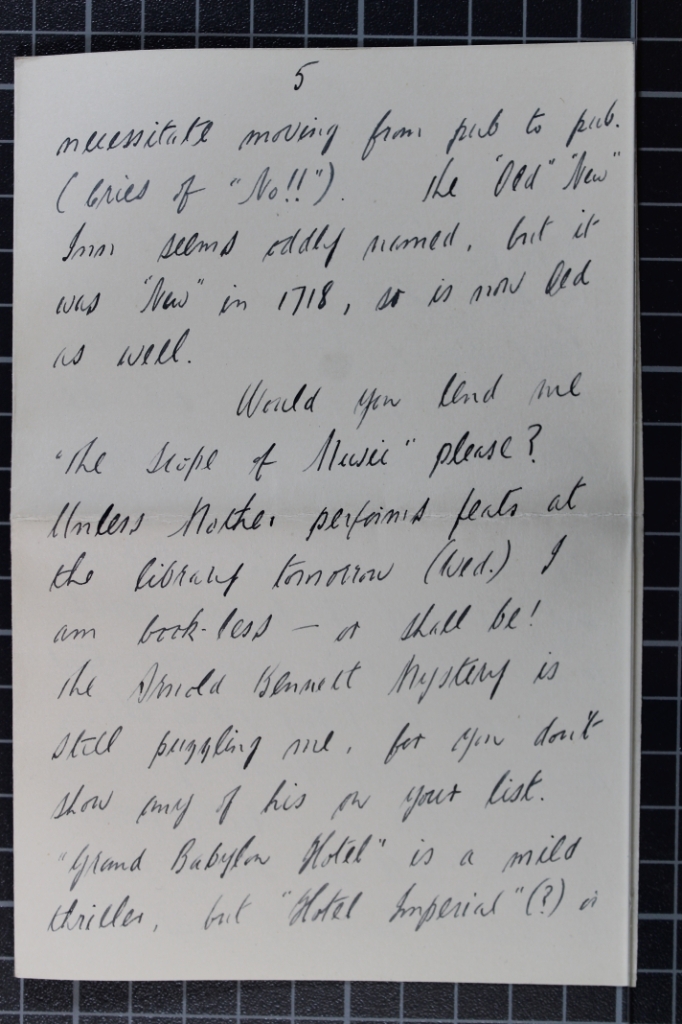 5
necessitate moving from pub to pub.
(Cries of "No!!"). The "Old" "New"
Inn seems oddly named, but it
was "New" in 1718, so is now Old
as well.
Would you lend me
"The Scope of Music" please?
Unless Mother performs feats at
the library tomorrow (Wed.) I
am book-less — or shall be!
The Arnold Bennett Mystery is
still puzzling me, for you don't
show any of his on your list.
"Grand Babylon Hotel" is a mild
thriller, but "Hotel Imperial" (?) is